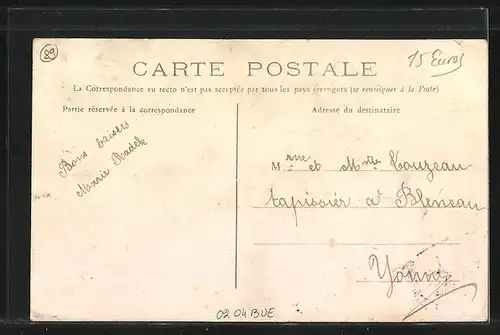 89
15 Euros
CARTE POSTALE
La Correspondance au recto n'est pas acceptée par tous les pays étrangers (se renseigner à la Poste)
Partie réservée à la correspondance
Adresse du destinataire
Bons baisers
Marie Radek
Mme et Mlle Touzeau
tapissier à Bléneau
Yonne
02 04 BUE